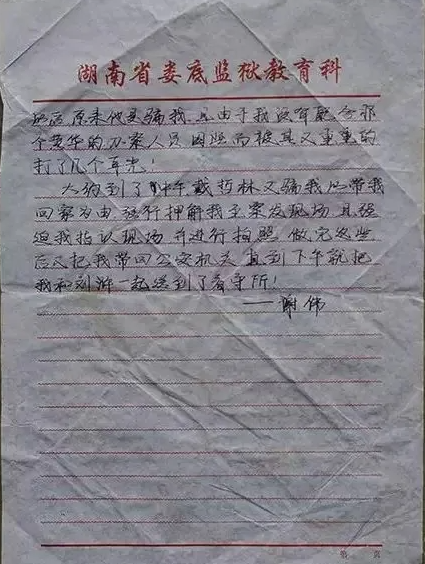 湖南省娄底监狱教育科
原来他是骗我 且由于我没有配合那
个 的办案人员 因此而被其又重重的
打了几个耳光!
大约到了 中午戴哲林又骗我以带我
回家为由 强行押解我至案发现场 且强
迫我指认现场 并进行拍照 做完这些
后又把我带回公安机关 直到下午就把
我和刘 一起送到了看守所!
——谢伟
第 页